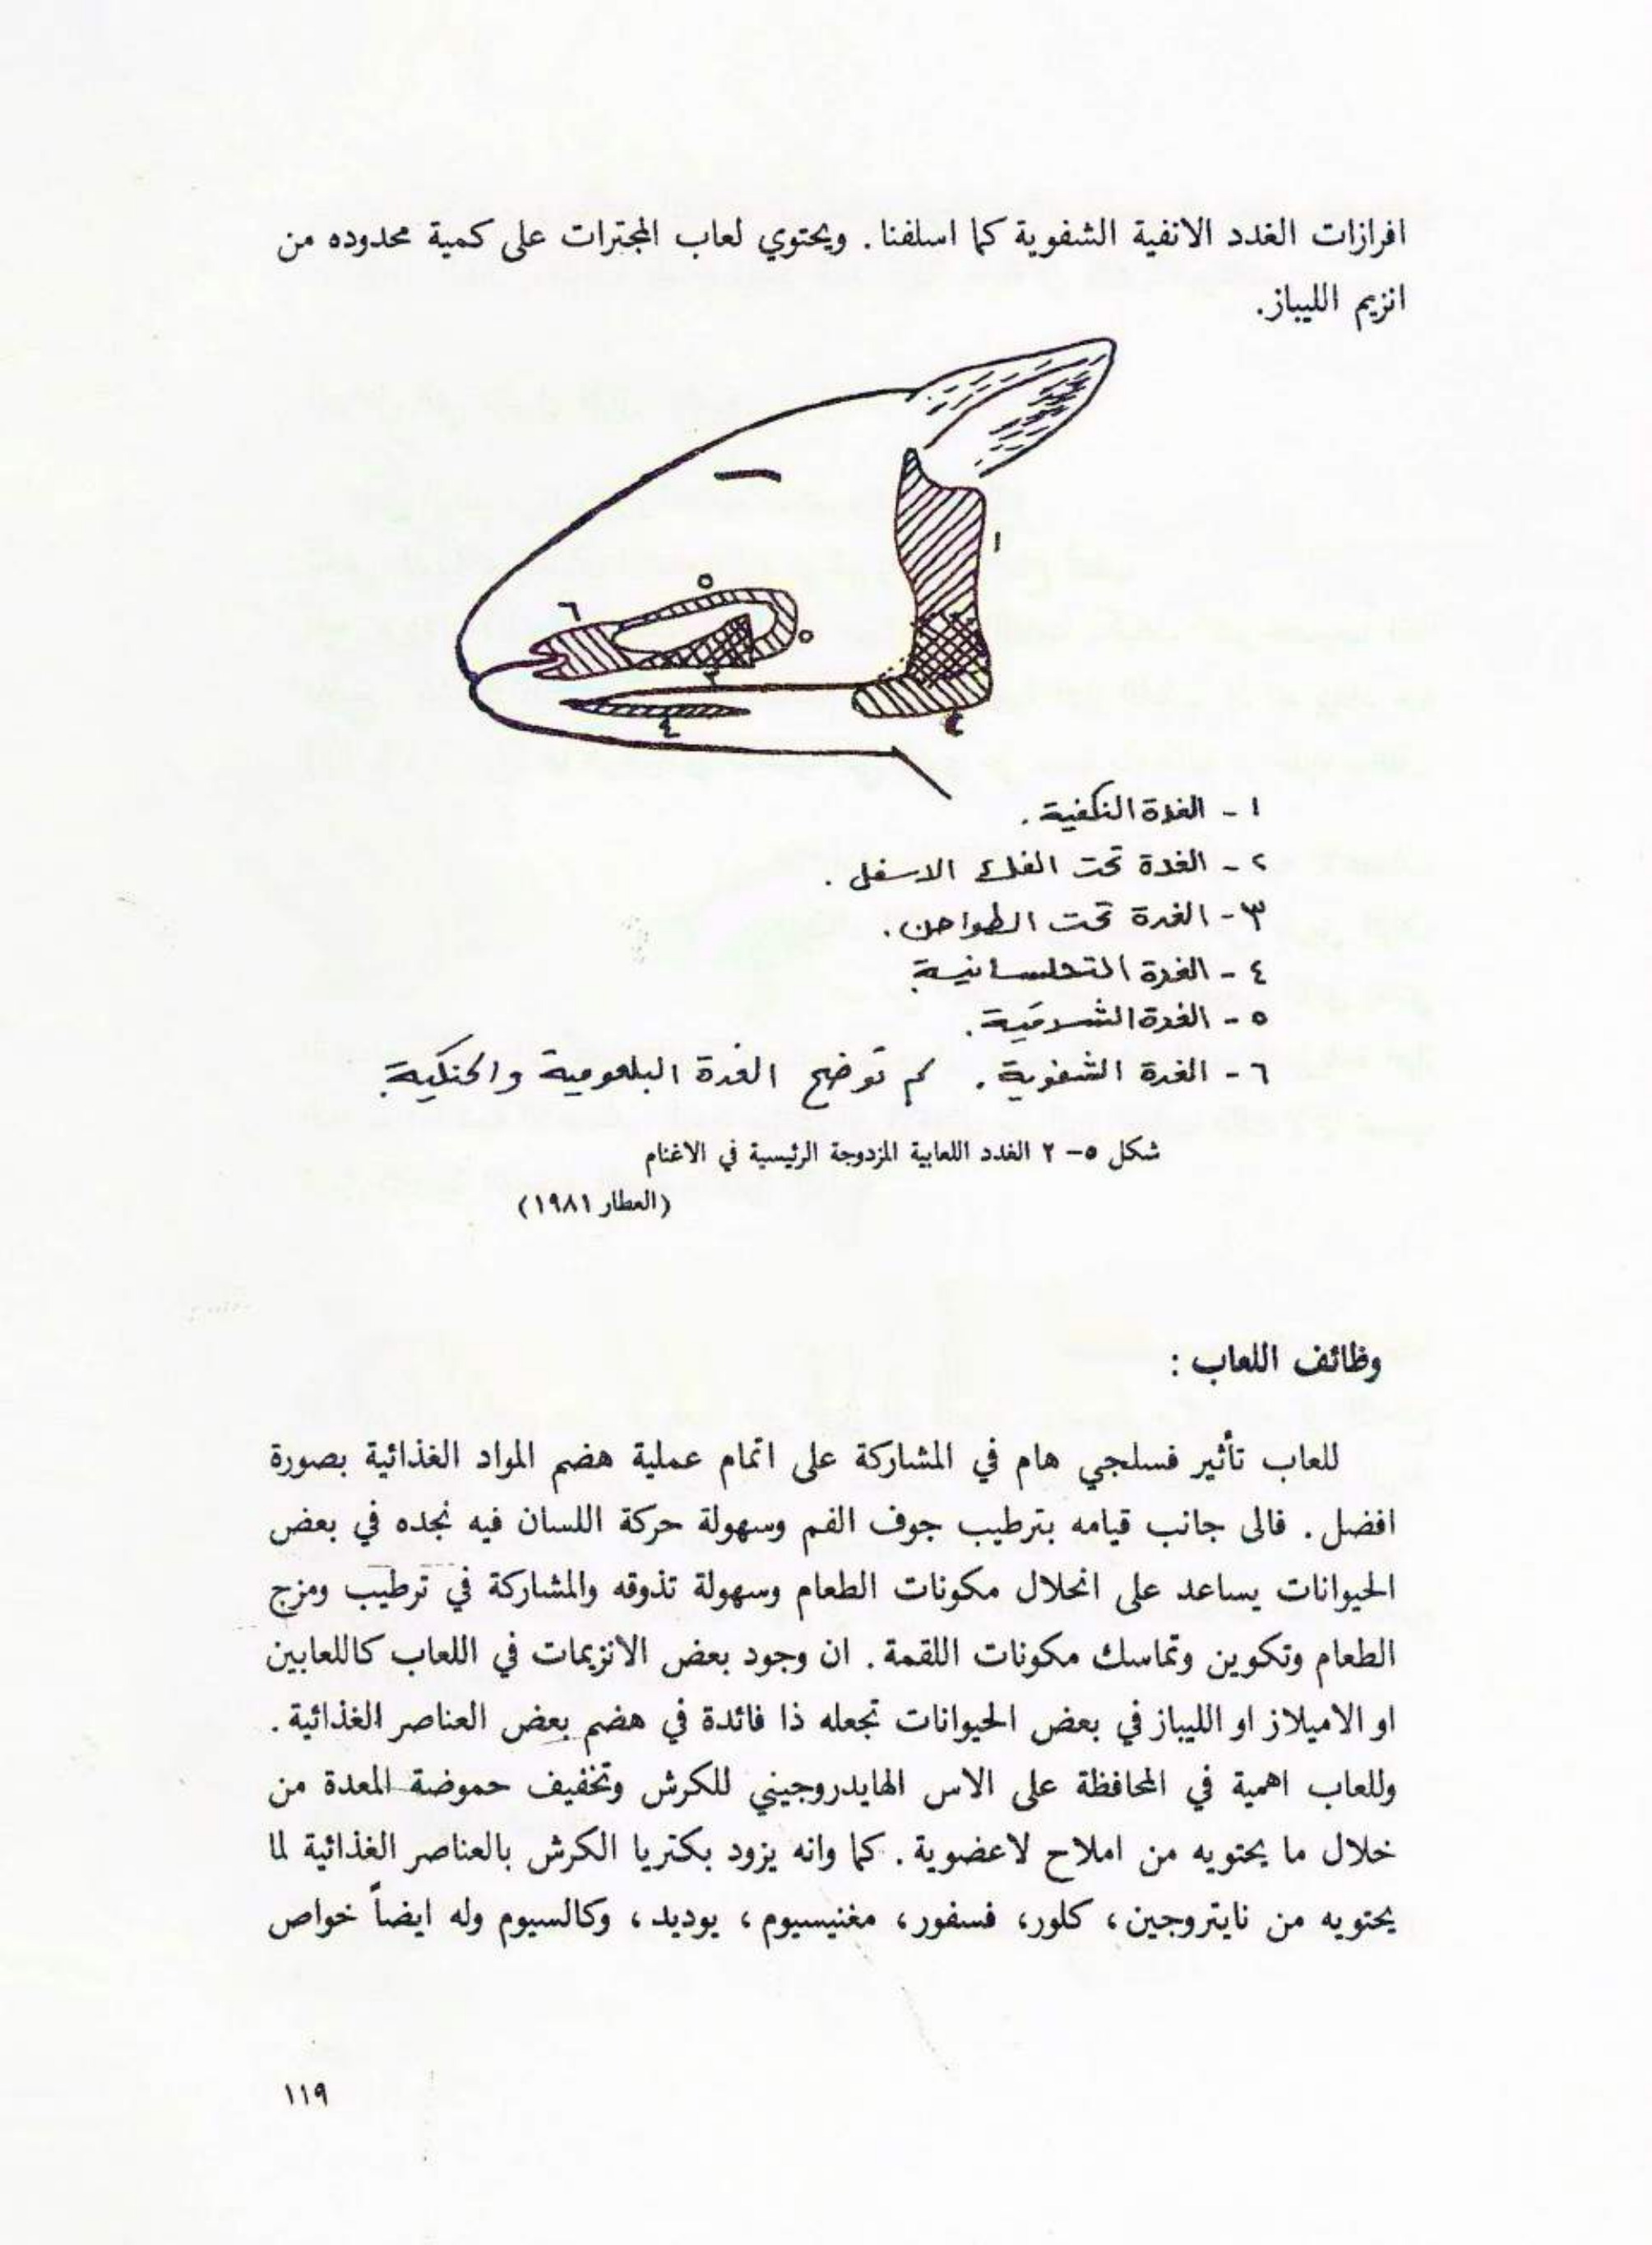 افرازات الغدد الانفية الشفوية كما اسلفنا . ويحتوي لعاب المجترات على كمية محدوده من
انزيم الليباز.
١
٥
٦
٥
٣
٤
١ - الغدة النكفية .
٢ - الغدة تحت الفك الاسفل .
٣ - الغدة تحت الطواحن .
٤ - الغدة التحلسانية .
٥ - الغدة الشدقية .
٦ - الغدة الشفوية . لم توضح الغدة البلعومية والحنكية .
شكل ٥- ٢ الغدد اللعابية المزدوجة الرئيسية في الاغنام
(العطار ١٩٨١)
وظائف اللعاب :
للعاب تأثير فسلجي هام في المشاركة على اتمام عملية هضم المواد الغذائية بصورة
افضل . فالى جانب قيامه بترطيب جوف الفم وسهولة حركة اللسان فيه نجده في بعض
الحيوانات يساعد على انحلال مكونات الطعام وسهولة تذوقه والمشاركة في ترطيب ومزج
الطعام وتكوين وتماسك مكونات اللقمة . ان وجود بعض الانزيمات في اللعاب كاللعابين
او الاميلاز او الليباز في بعض الحيوانات تجعله ذا فائدة في هضم بعض العناصر الغذائية .
وللعاب اهمية في المحافظة على الاس الهايدروجيني للكرش وتخفيف حموضة المعدة من
خلال ما يحتويه من املاح لاعضوية . كما وانه يزود بكتريا الكرش بالعناصر الغذائية لما
يحتويه من نايتروجين ، كلور، فسفور، مغنيسيوم ، يوديد ، وكالسيوم وله ايضاً خواص
١١٩